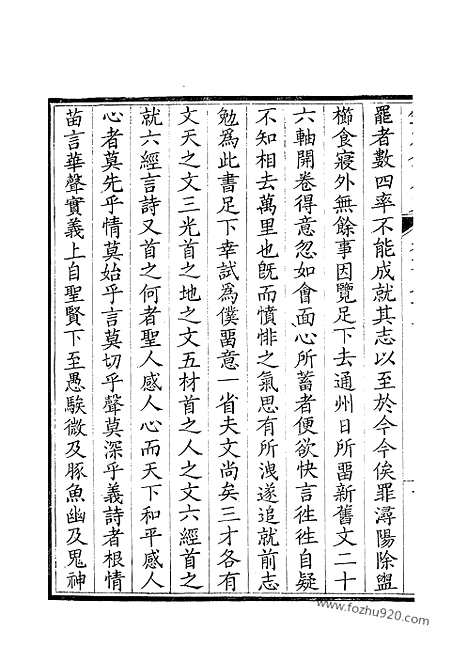 罷者數四率不能成就其志以至於今今俟罪潯陽除盥
櫛食寢外無餘事因覽足下去通州日所畱新舊文二十
六軸開卷得意忽如會面心所蓄者便欲快言徃徃自疑
不知相去萬里也旣而憤悱之氣思有所洩遂追就前志
勉爲此書足下幸試爲僕畱意一省夫文尚矣三才各有
文天之文三光首之地之文五材首之人之文六經首之
就六經言詩又首之何者聖人感人心而天下和平感人
心者莫先乎情莫始乎言莫切乎聲莫深乎義詩者根情
苗言華聲實義上自聖賢下至愚騃微及豚魚幽及鬼神
www.fozhu920.com